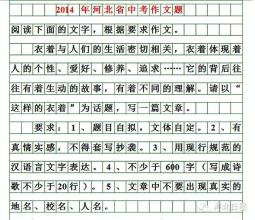 2014 年河北省中考作文题
阅读下面的文字,根据要求作文。
衣着与人们的生活密切相关,衣着体现着
人的个性、爱好、修养、追求……它的背后往
往有着生动的故事,有着不同的理解。请以“
这样的衣着”为话题,写一篇文章。
要求:1、题目自拟,文体自定。2、有
真情实感,不得套写抄袭。3、用现行规范的
汉语言文字表达。4、不少于 600 字(写成诗
歌不少于20行)。5、文章中不要出现真实的
地名、校名、人名。
河北日报